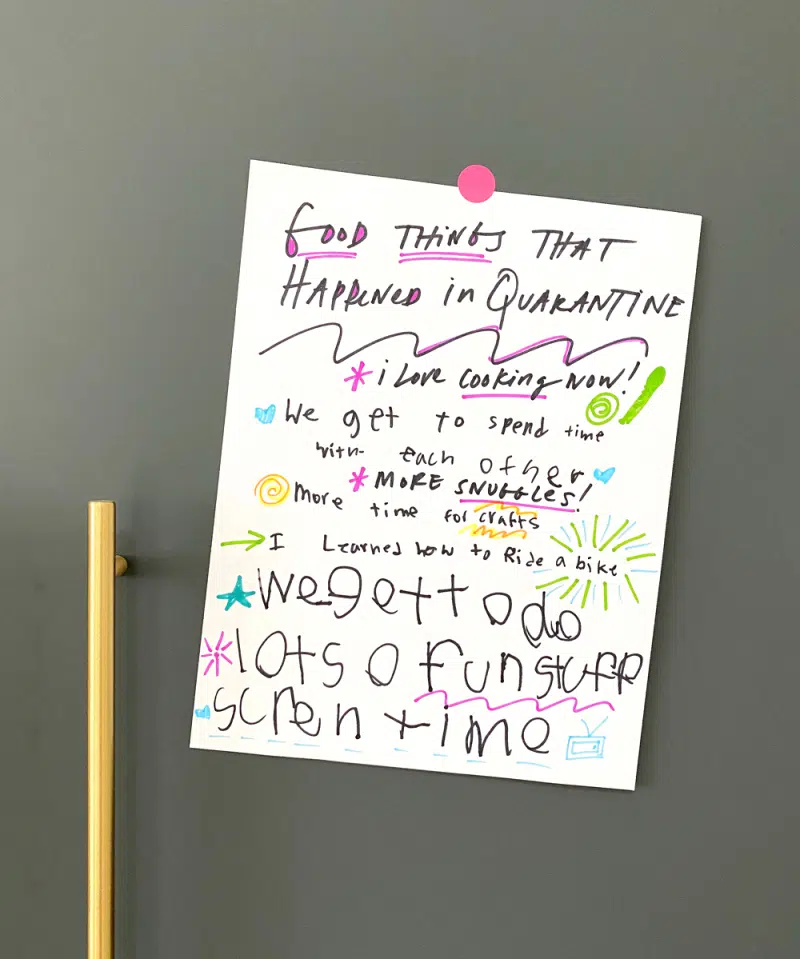 GOOD THINGS THAT
HAPPENED in QUARANTINE
i Love cooking NOW!
We get to spend time
with each other
MORE SNUGGLES!
More time for crafts
I Learned how to Ride a bike
we gett o do
lots o fun stuff
scren time